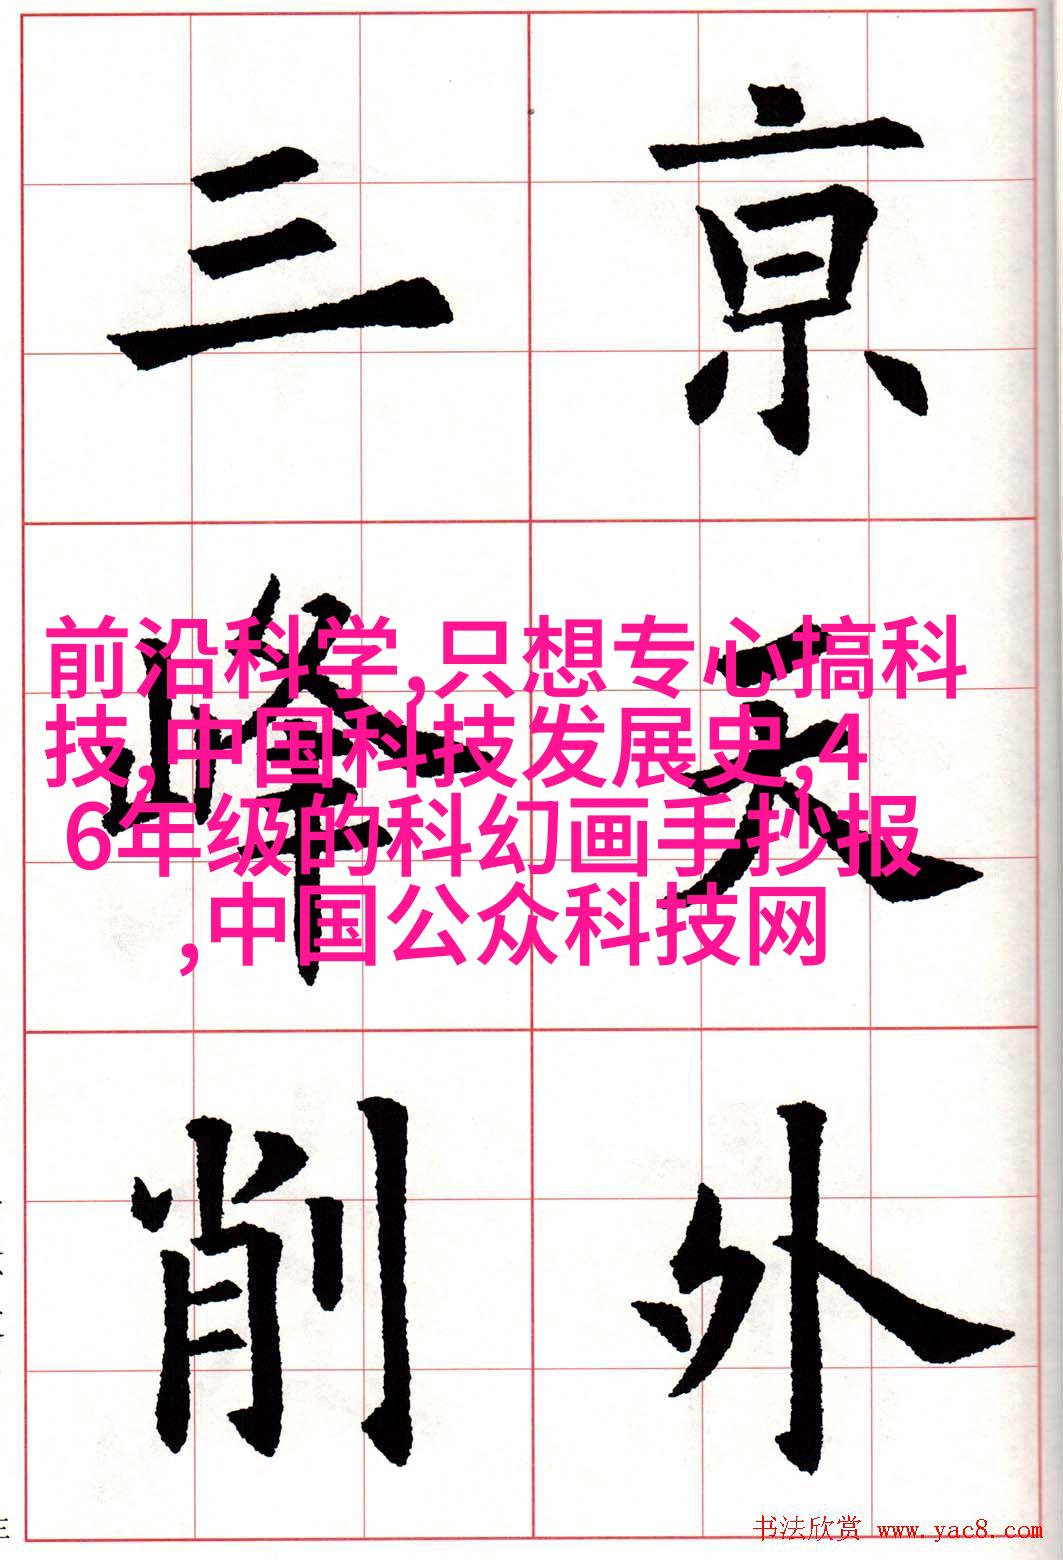 京
天
外
三
峰
削
前沿科学,只想专心搞科
技,中国科技发展史,4
6年级的科幻画手抄报
,中国公众科技网
书法欣赏 www.yac8.com